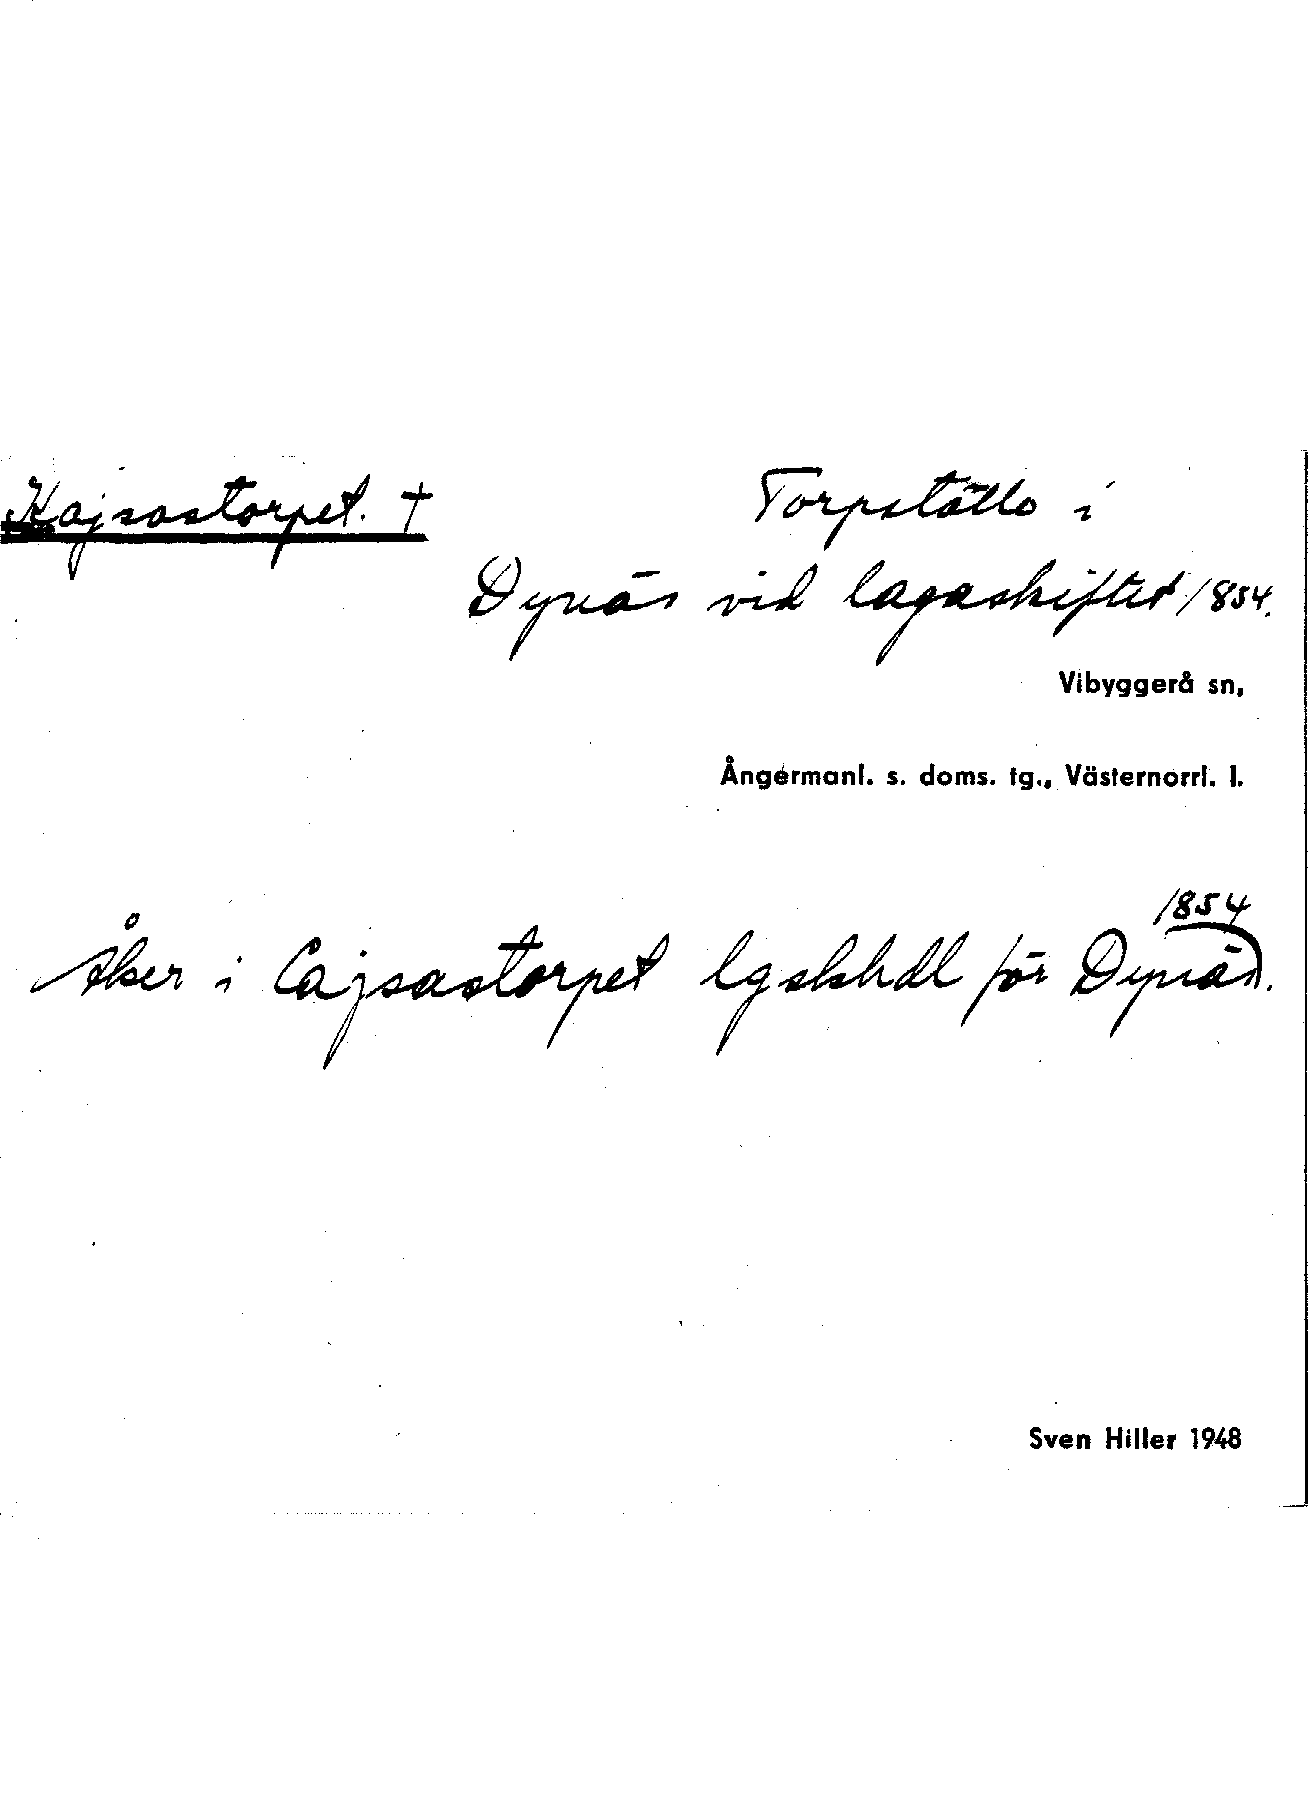 Kajsastorpet. †
Torpställe i
Dynäs vid lagaskiftet 1854.
Vibyggerå sn,
Ångermanl. s. doms. tg., Västernorrl. l.
1854
Åker i Cajsastorpet lgskhdl för Dynäs.
Sven Hiller 1948